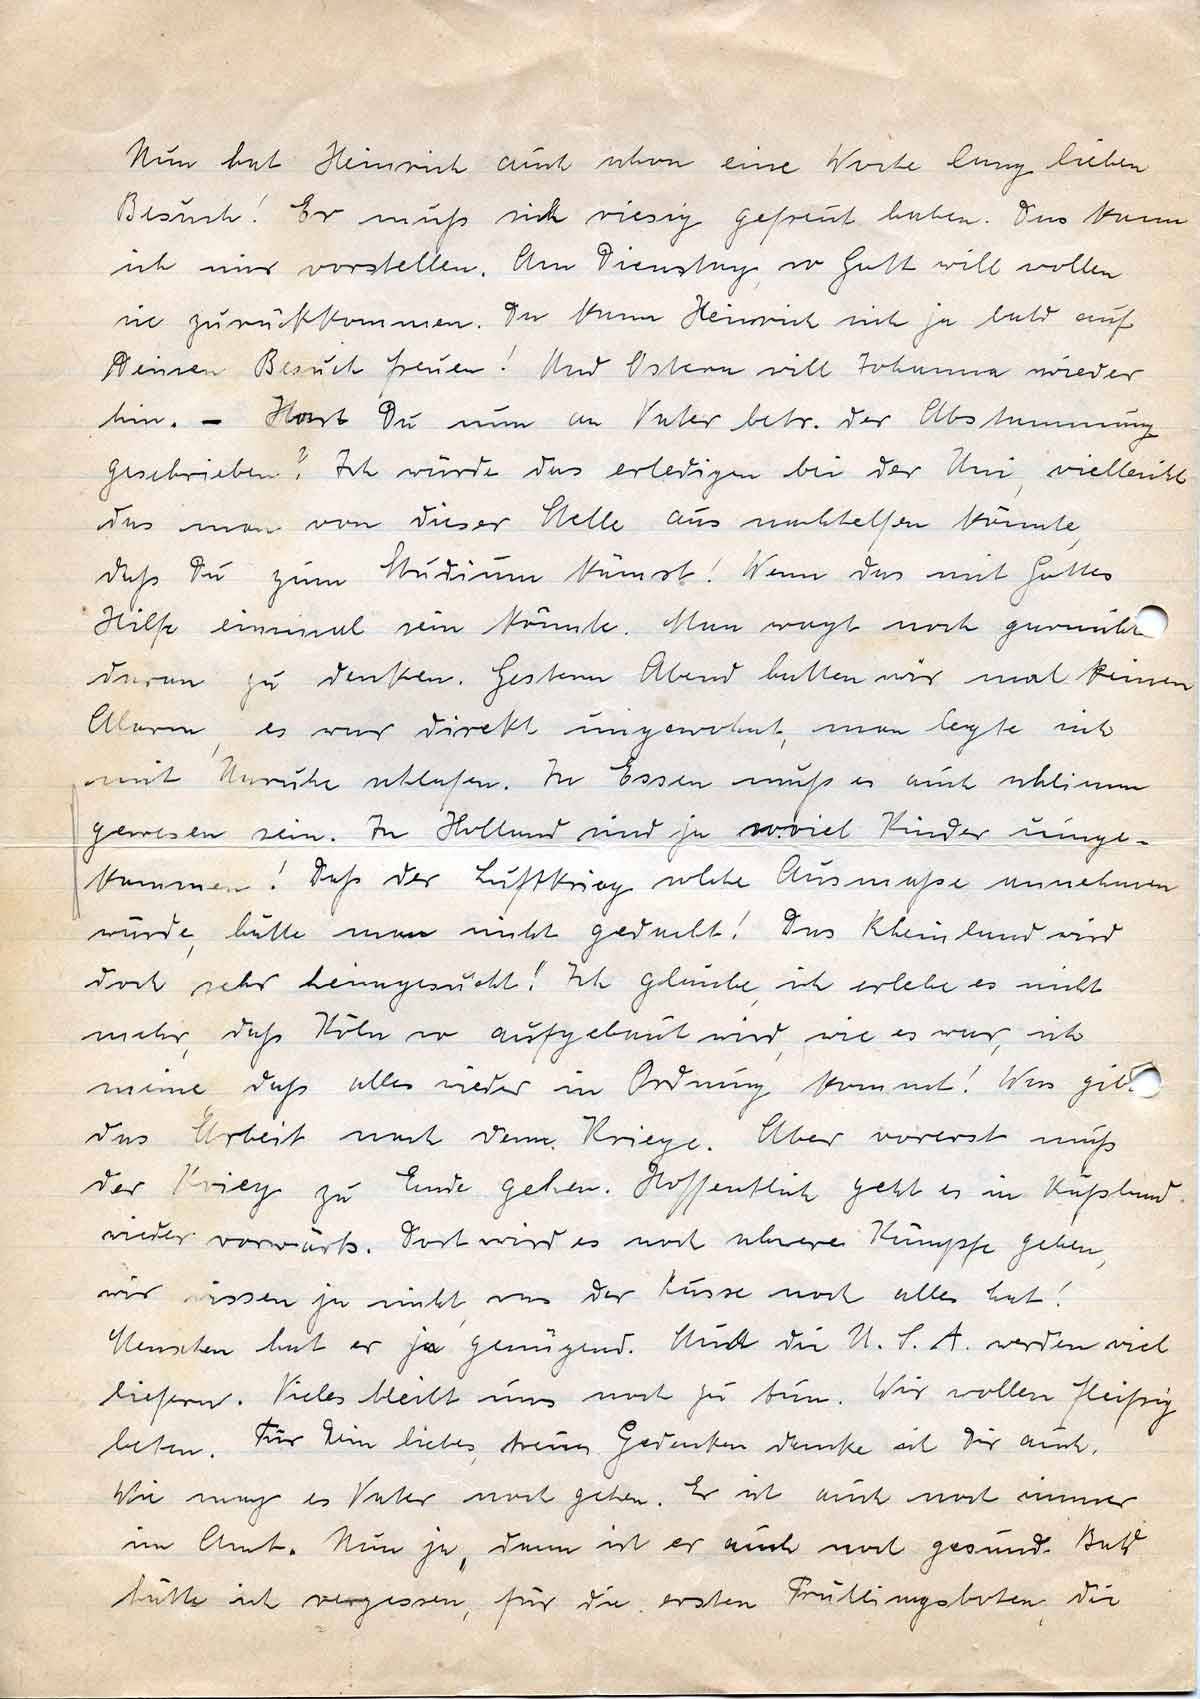 Nun hat Heinrich auch schon eine Woche lang lieben
Besuch! Er muß sich riesig gefreut haben. Das kann
ich mir vorstellen. Am Dienstag, so Gott will wollen
sie zurückkommen. Da kann Heinrich sich ja bald auf
Deinen Besuch freuen! Und Ostern will Johanna wieder
hin. – Hast Du nun an Vater betr. der Abstammung
geschrieben? Ich würde das erledigen bei der Uni, vielleicht
das man von dieser Stelle aus nachhelfen könnte,
daß Du zum Studium kämst! Wenn das mit Gottes
Hilfe einmal sein könnte. Man wagt noch garnicht
daran zu denken. Gestern Abend hatten wir mal keinen
Alarm, es war direkt ungewohnt, man legte sich
mit Unruhe schlafen. In Essen muß es auch schlimm
gewesen sein. In Holland sind ja soviel Kinder umge-
kommen! Daß der Luftkrieg solche Ausmaße annehmen
würde, hätte man nicht gedacht! Das Rheinland wird
doch sehr heimgesucht! Ich glaube, ich erlebe es nicht
mehr, daß Köln so aufgebaut wird, wie es war, ich
meine daß alles wieder in Ordnung kommt! Was gibt
das Arbeit nach dem Kriege. Aber vorerst muß
der Krieg zu Ende gehen. Hoffentlich geht es in Rußland
wieder vorwärts. Dort wird es noch schwere Kämpfe geben,
wir wissen ja nicht, was der Russe noch alles hat!
Menschen hat er ja genügend. Auch die U.S.A. werden viel
liefern. Vieles bleibt uns noch zu tun. Wir wollen fleißig
beten. Für Dein liebes, treues Gedenken danke ich Dir auch.
Wie mag es Vater noch gehen. Er ist auch noch immer
im Amt. Nun ja, dann ist er auch noch gesund. Bald
hätte ich vergessen, für die ersten Frühlingsboten, die